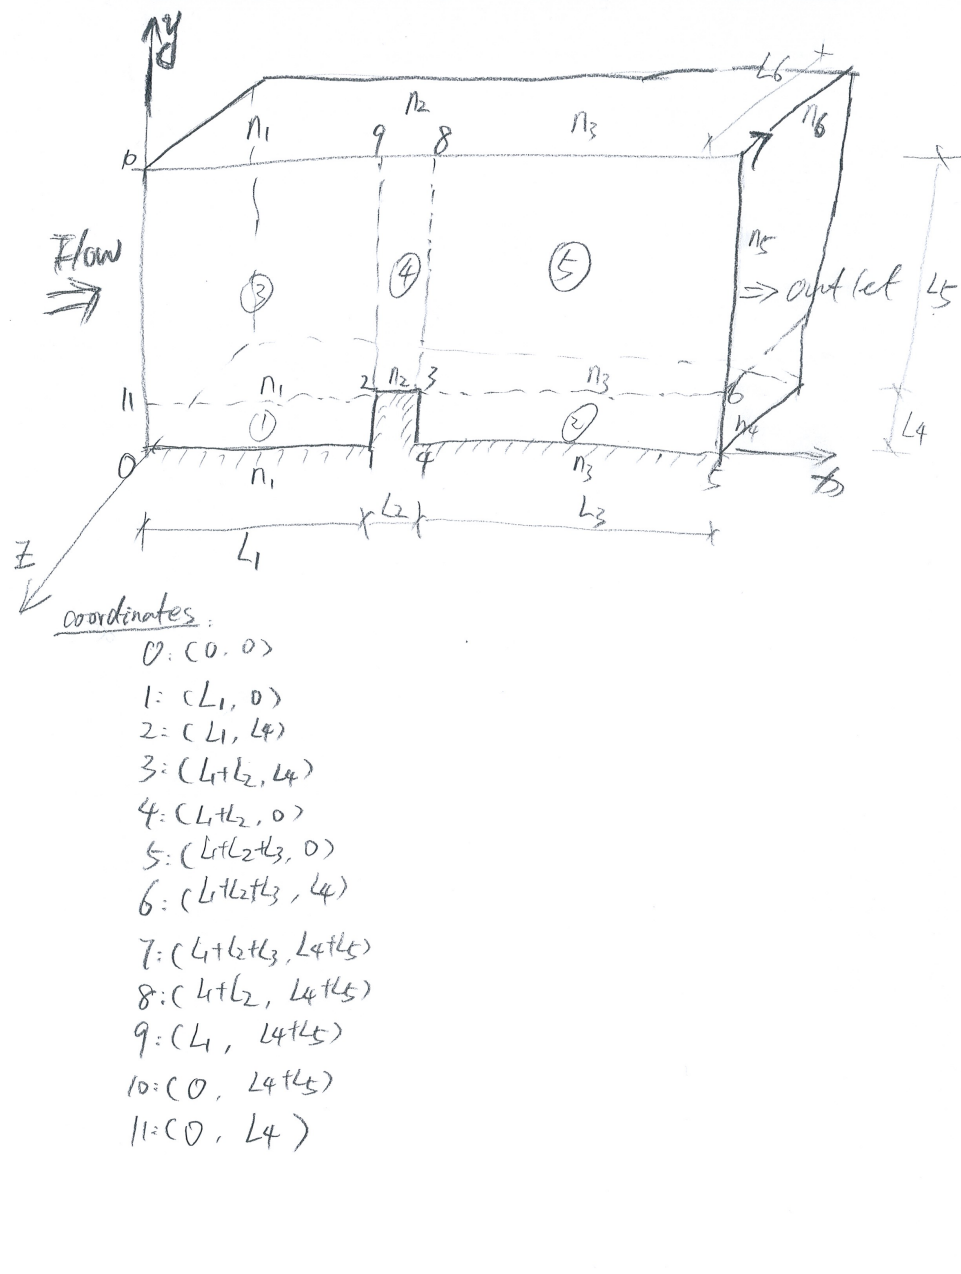 y
L6
n2
n1
9
8
n3
n6
10
Flow
3
4
5
n5
⇒ outlet
L5
11
n1
2
n2
3
n3
6
1
2
n4
L4
0
n1
1
4
n3
5
x
L2
L3
L1
Z
coordinates:
0: (0, 0)
1: (L1, 0)
2: (L1, L4)
3: (L1+L2, L4)
4: (L1+L2, 0)
5: (L1+L2+L3, 0)
6: (L1+L2+L3, L4)
7: (L1+L2+L3, L4+L5)
8: (L1+L2, L4+L5)
9: (L1, L4+L5)
10: (0, L4+L5)
11: (0, L4)